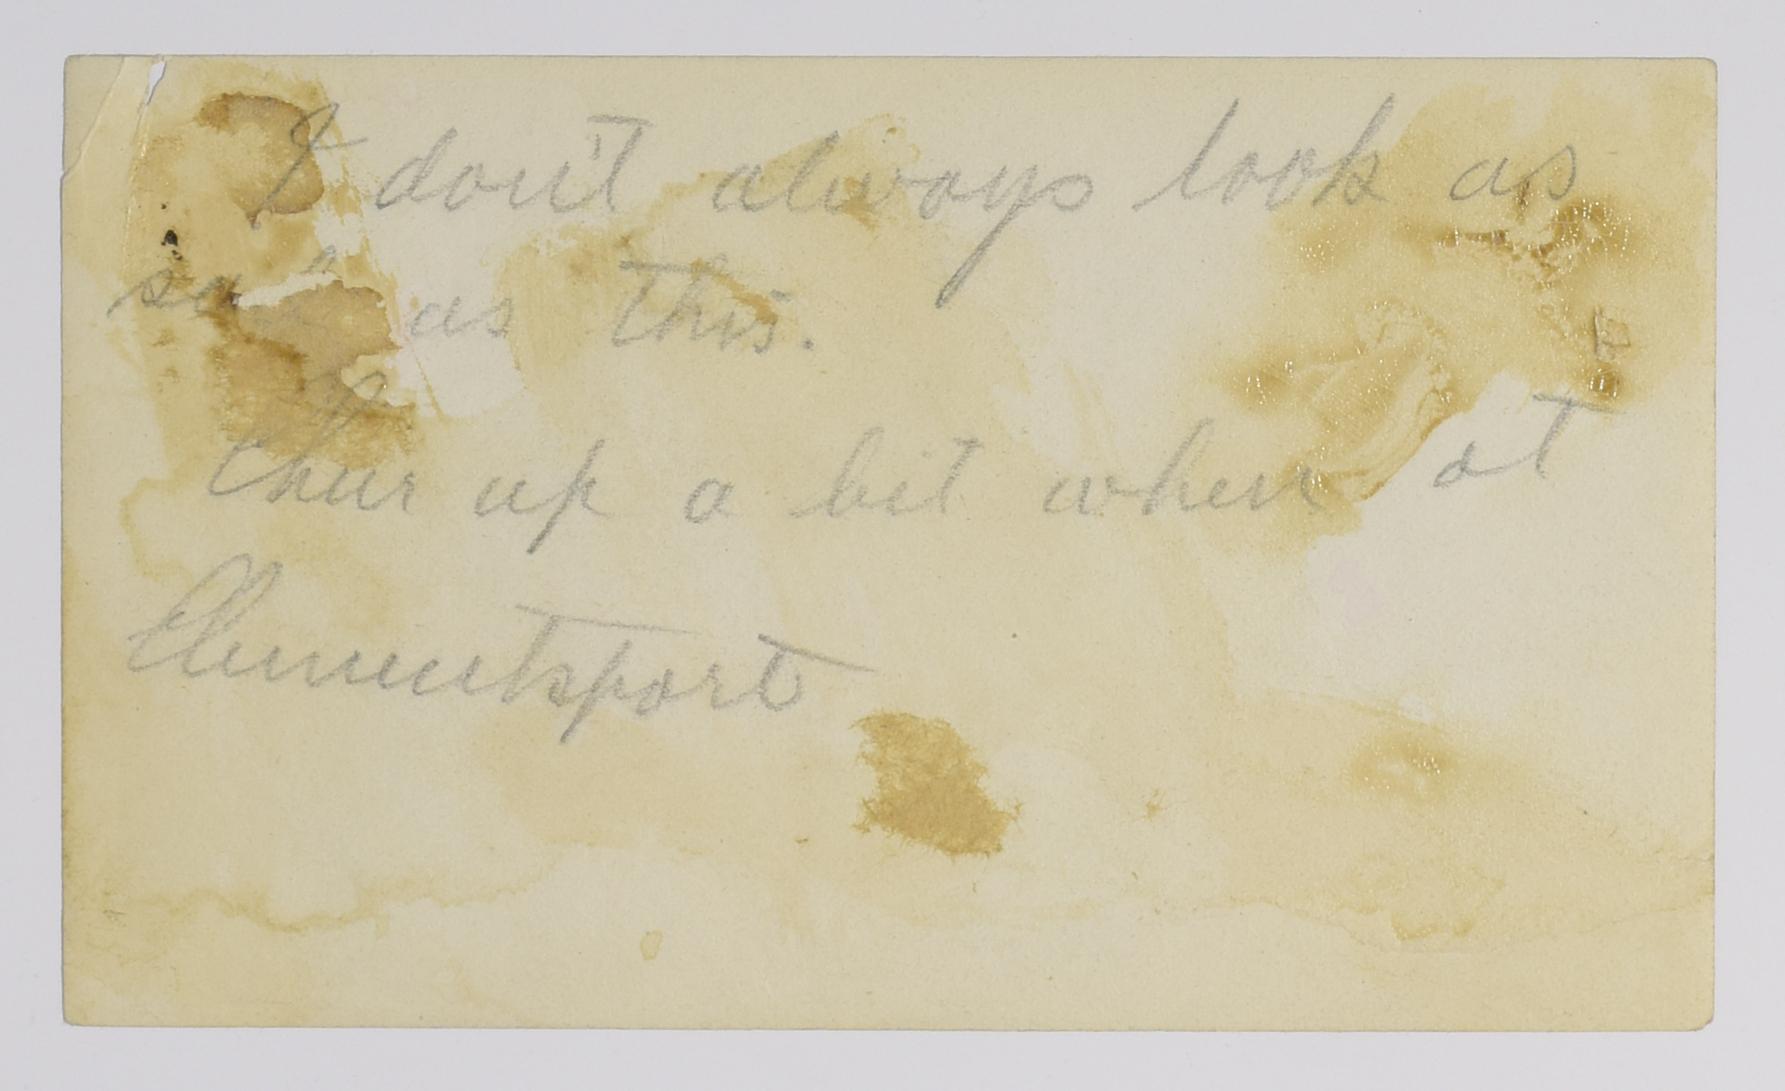 I don't always look as
sad as this.
Cheer up a bit when at
Clementsport